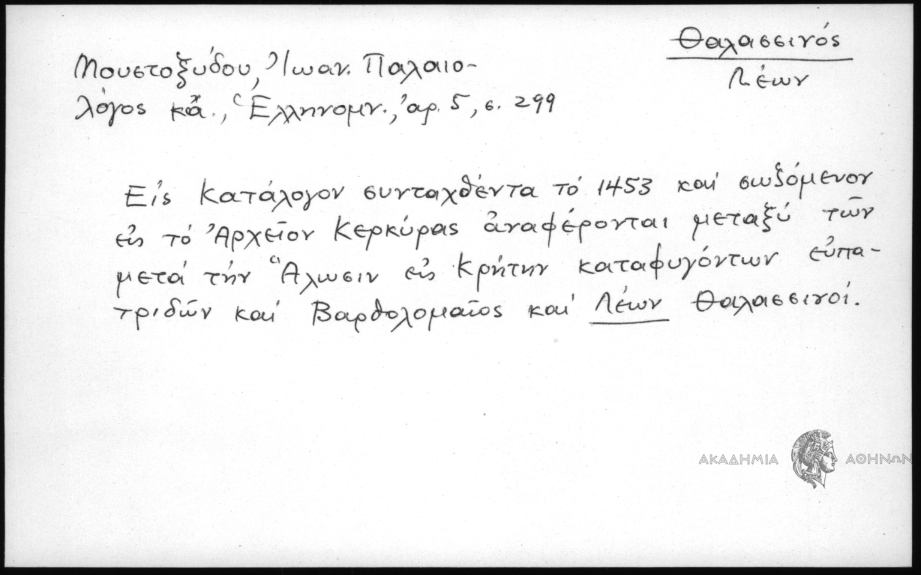 Θαλασσινός
Λέων
Μουστοξύδου, Ἰωαν. Παλαιο-
λόγος κἄ., Ἑλληνομν., ἀρ. 5, σ. 299
Εἰς κατάλογον συνταχθέντα τό 1453 καί σωζόμενον
εἰς τό Ἀρχεῖον Κερκύρας ἀναφέρονται μεταξύ τῶν
μετά τήν Ἅλωσιν εἰς Κρήτην καταφυγόντων εὐπα-
τριδῶν καί Βαρθολομαῖος καί Λέων Θαλασσινοί.
ΑΚΑΔΗΜΙΑ ΑΘΗΝΩΝ